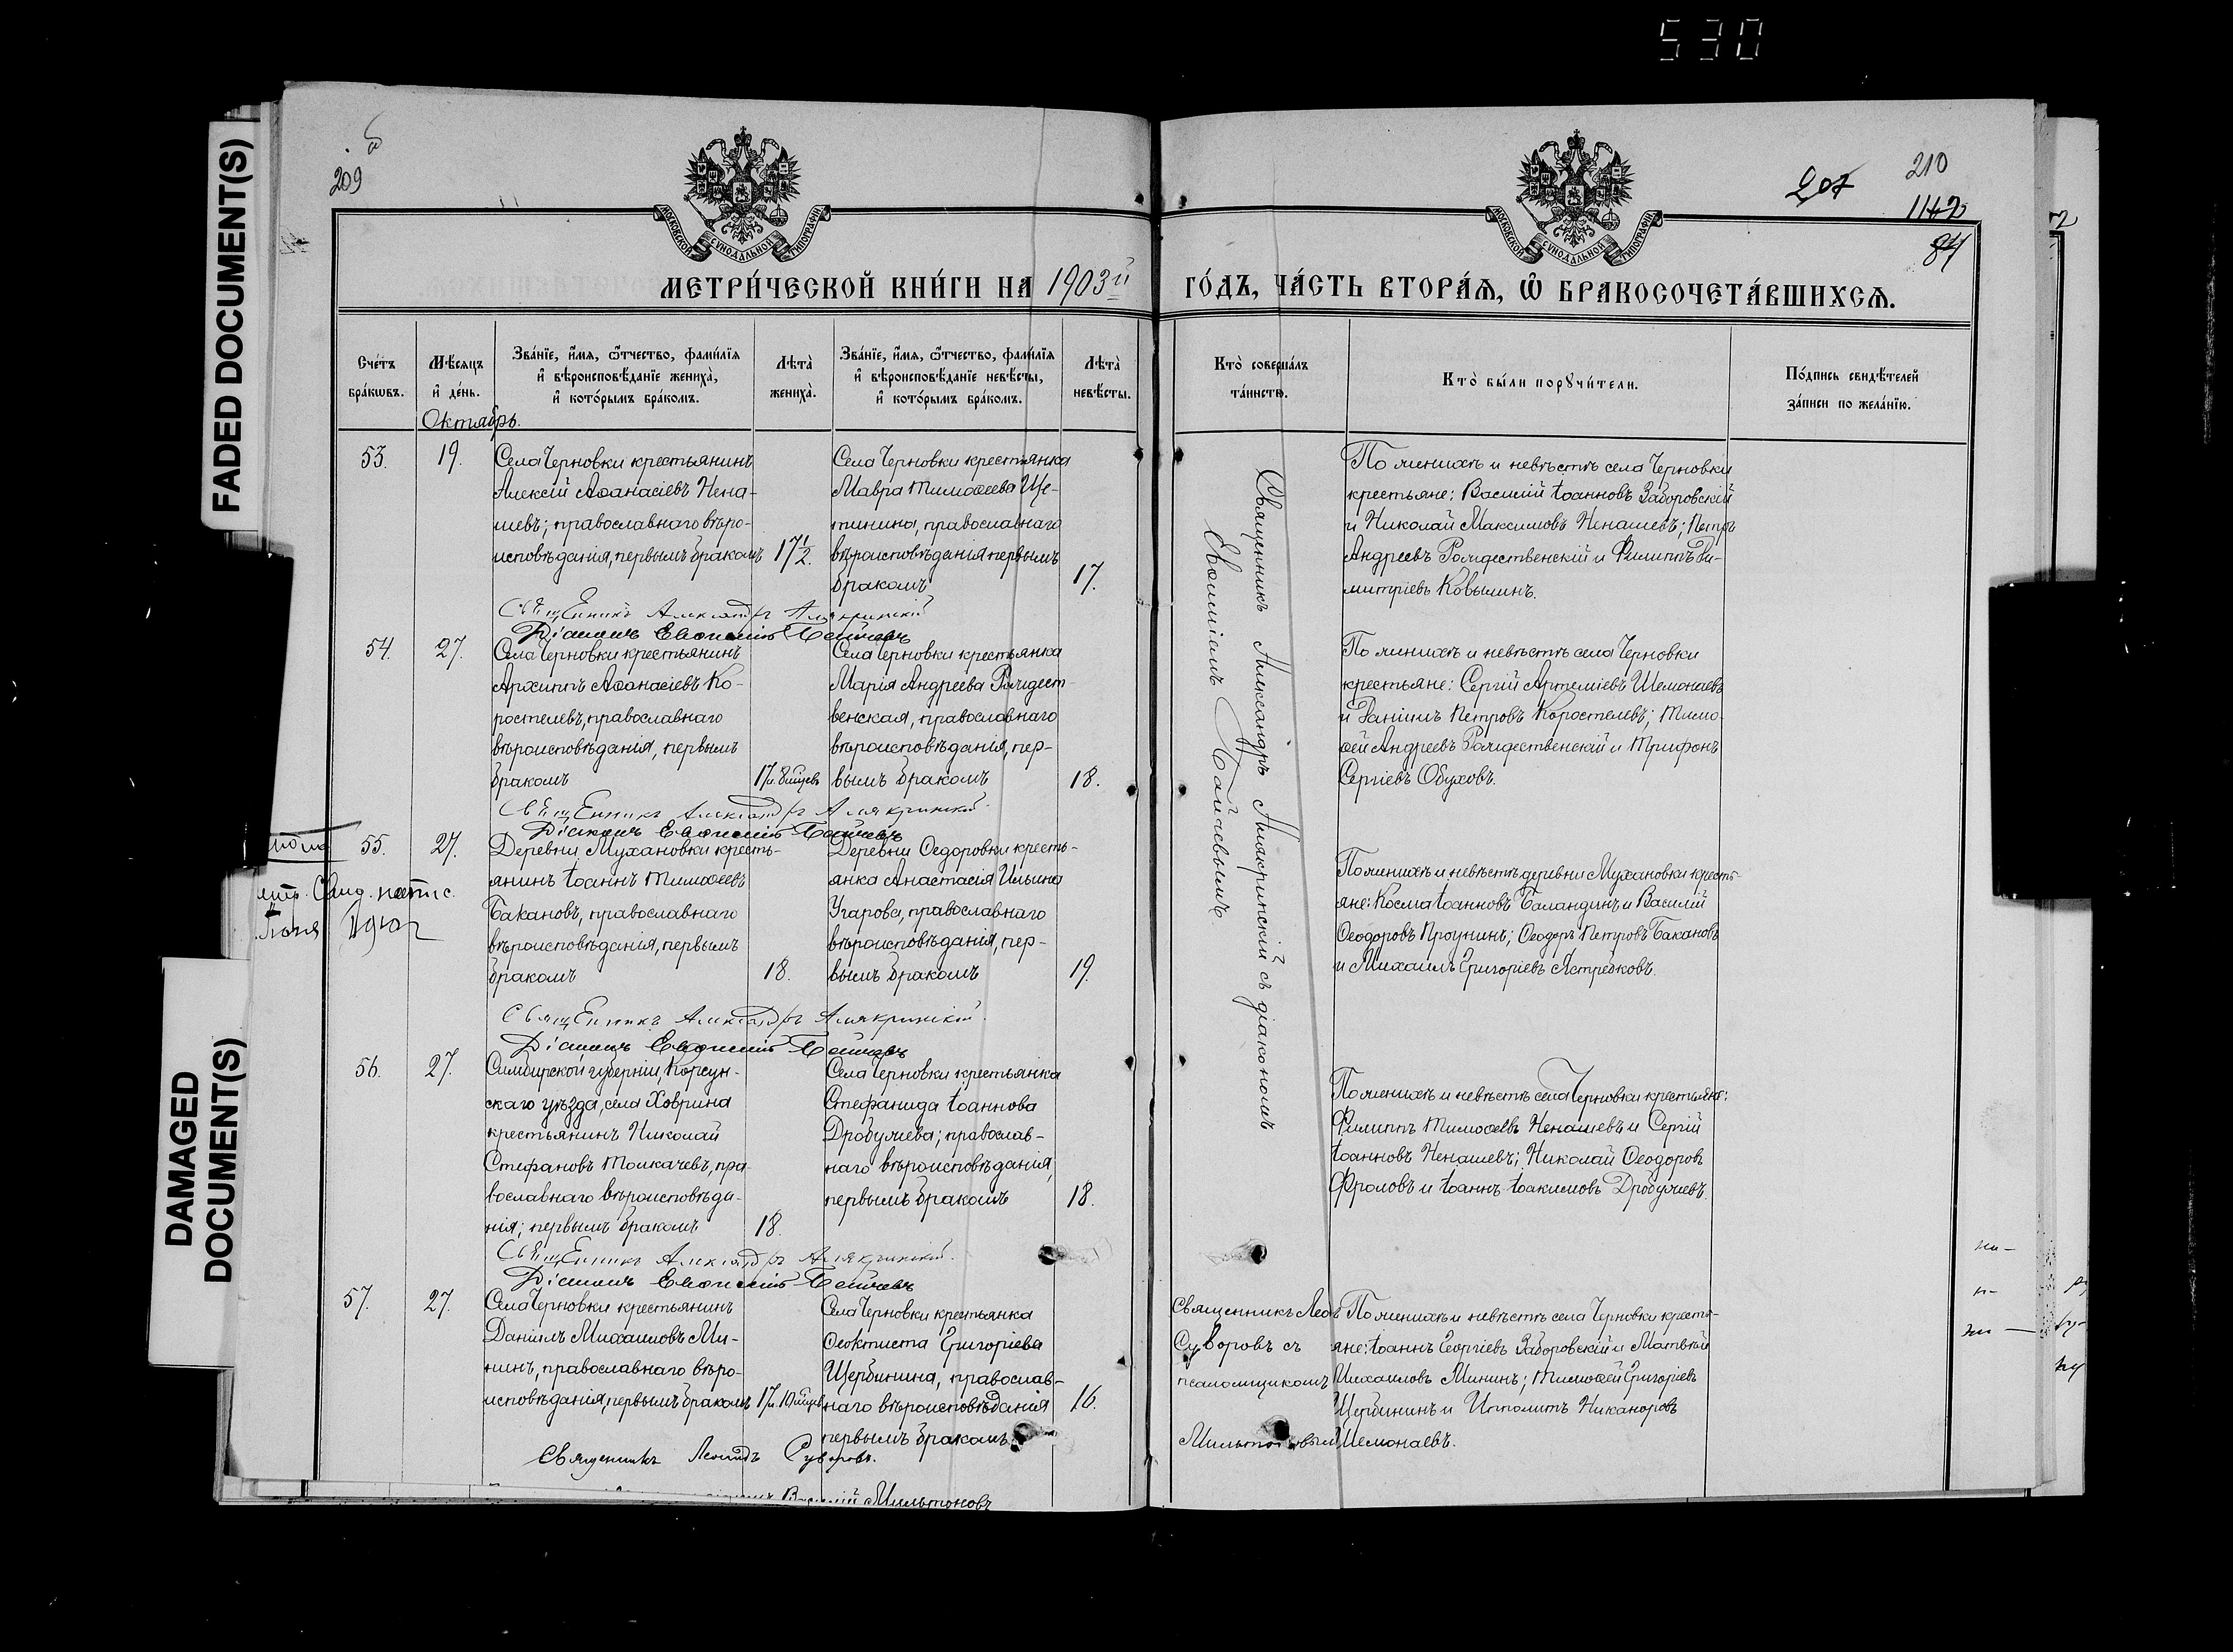 530
FADED DOCUMENT(S)
DAMAGED
DOCUMENT(S)
209
207
210
1142
84
МОСКОВСКОЙ СѴНОДАЛЬНОЙ ТИПОГРАФІИ
МОСКОВСКОЙ СѴНОДАЛЬНОЙ ТИПОГРАФІИ
МЕТРИ́ЧЕСКОЙ КНИ́ГИ НА 1903й ГО́ДЪ, ЧА́СТЬ ВТОРА́Я, Ѡ БРАКОСОЧЕТА́ВШИХСѦ.
Сче́тъ
бра́кѡвъ.
Мѣ́сяцъ
и҆ де́нь.
Зва́нїе, и҆́мя, ѻ҆́тчество, фами́лїя
и҆ вѣроисповѣ́данїе жениха̀,
и҆ кото́рымъ бра́комъ.
Лѣта̀
жениха̀.
Зва́нїе, и҆́мя, ѻ҆́тчество, фами́лїя
и҆ вѣроисповѣ́данїе невѣ́сты,
и҆ кото́рымъ бра́комъ.
Лѣта̀
невѣ́сты.
Кто̀ соверша́лъ
та́инство.
Кто̀ бы́ли порꙋчи́тели.
По́дпись свидѣ́телей
за́писи по жела́нїю.
Октябрь.
53.
19.
Села Черновки крестьянинъ
Алексій Аѳанасіевъ Нена-
шевъ; православнаго вѣро-
исповѣданія, первымъ бракомъ
17 1/2.
Села Черновки крестьянка
Мавра Тимоѳеева Ще-
тинина, православнаго
вѣроисповѣданія первымъ
бракомъ
17.
По женихѣ и невѣстѣ села Черновки
крестьяне: Василій Іоанновъ Заборовскій
и Николай Максимовъ Ненашевъ; Петръ
Андреевъ Рождественскій и Филиппъ Ди-
митріевъ Ковылинъ.
Священникъ Александръ Алякринскій
Діаконъ Евѳимій
54.
27.
Села Черновки крестьянинъ
Архиппъ Аѳанасіевъ Ко-
ростелевъ, православнаго
вѣроисповѣданія, первымъ
бракомъ
17 и 8 мѣсяцевъ
Села Черновки крестьянка
Марія Андреева Рождест-
венская, православнаго
вѣроисповѣданія, пер-
вымъ бракомъ
18.
По женихѣ и невѣстѣ села Черновки
крестьяне: Сергій Артеміевъ Шемонаевъ
и Даніилъ Петровъ Коростелевъ; Тимо-
ѳей Андреевъ Рождественскій и Трифонъ
Сергіевъ Обуховъ.
Священникъ Александръ Алякринскій.
Діаконъ Евѳимій
55.
27.
Деревни Мухановки кресть-
янинъ Іоаннъ Тимоѳеевъ
Бакановъ, православнаго
вѣроисповѣданія, первымъ
бракомъ
18.
Деревни Ѳедоровки кресть-
янка Анастасія Ильина
Угарова, православнаго
вѣроисповѣданія, пер-
вымъ бракомъ
19.
По женихѣ и невѣстѣ деревни Мухановки кресть-
яне: Косма Іоанновъ Баландинъ и Василій
Ѳеодоровъ Проунинъ; Ѳеодоръ Петровъ Бакановъ
и Михаилъ Григоріевъ Ястребковъ.
Священникъ Александръ Алякринскій.
Діаконъ Евѳимій
56.
27.
Симбирской губерніи, Корсун-
скаго уѣзда, села Ховрина
крестьянинъ Николай
Стефановъ Толкачевъ, пра-
вославнаго вѣроисповѣда-
нія; первымъ бракомъ
18.
Села Черновки крестьянка
Стефанида Іоаннова
Дробужева; православ-
наго вѣроисповѣданія,
первымъ бракомъ
18.
По женихѣ и невѣстѣ села Черновки крестьяне:
Филиппъ Тимоѳеевъ Ненашевъ и Сергій
Іоанновъ Ненашевъ; Николай Ѳеодоровъ
Фроловъ и Іоаннъ Іоакимовъ Дробужевъ.
Священникъ Александръ Алякринскій.
Діаконъ Евѳимій
Священникъ Александръ Алякринскій съ діакономъ
Евѳиміемъ
57.
27.
Села Черновки крестьянинъ
Даніилъ Михаиловъ Ми-
нинъ, православнаго вѣро-
исповѣданія, первымъ бракомъ
17 и 10 мѣсяцев
Села Черновки крестьянка
Ѳеоктиста Григоріева
Щербинина, православ-
наго вѣроисповѣданія
первымъ бракомъ.
16.
Священникъ
Суворовъ съ
псаломщикомъ
По женихѣ и невѣстѣ села Черновки кресть-
яне: Іоаннъ Георгіевъ Заборовскій и Матвѣй
Михаиловъ Мининъ; Тимоѳей Григоріевъ
Щербининъ и Ипполитъ Никаноровъ
Шемонаевъ.
Священникъ Леонидъ Суворовъ.
Василій Мильтоновъ